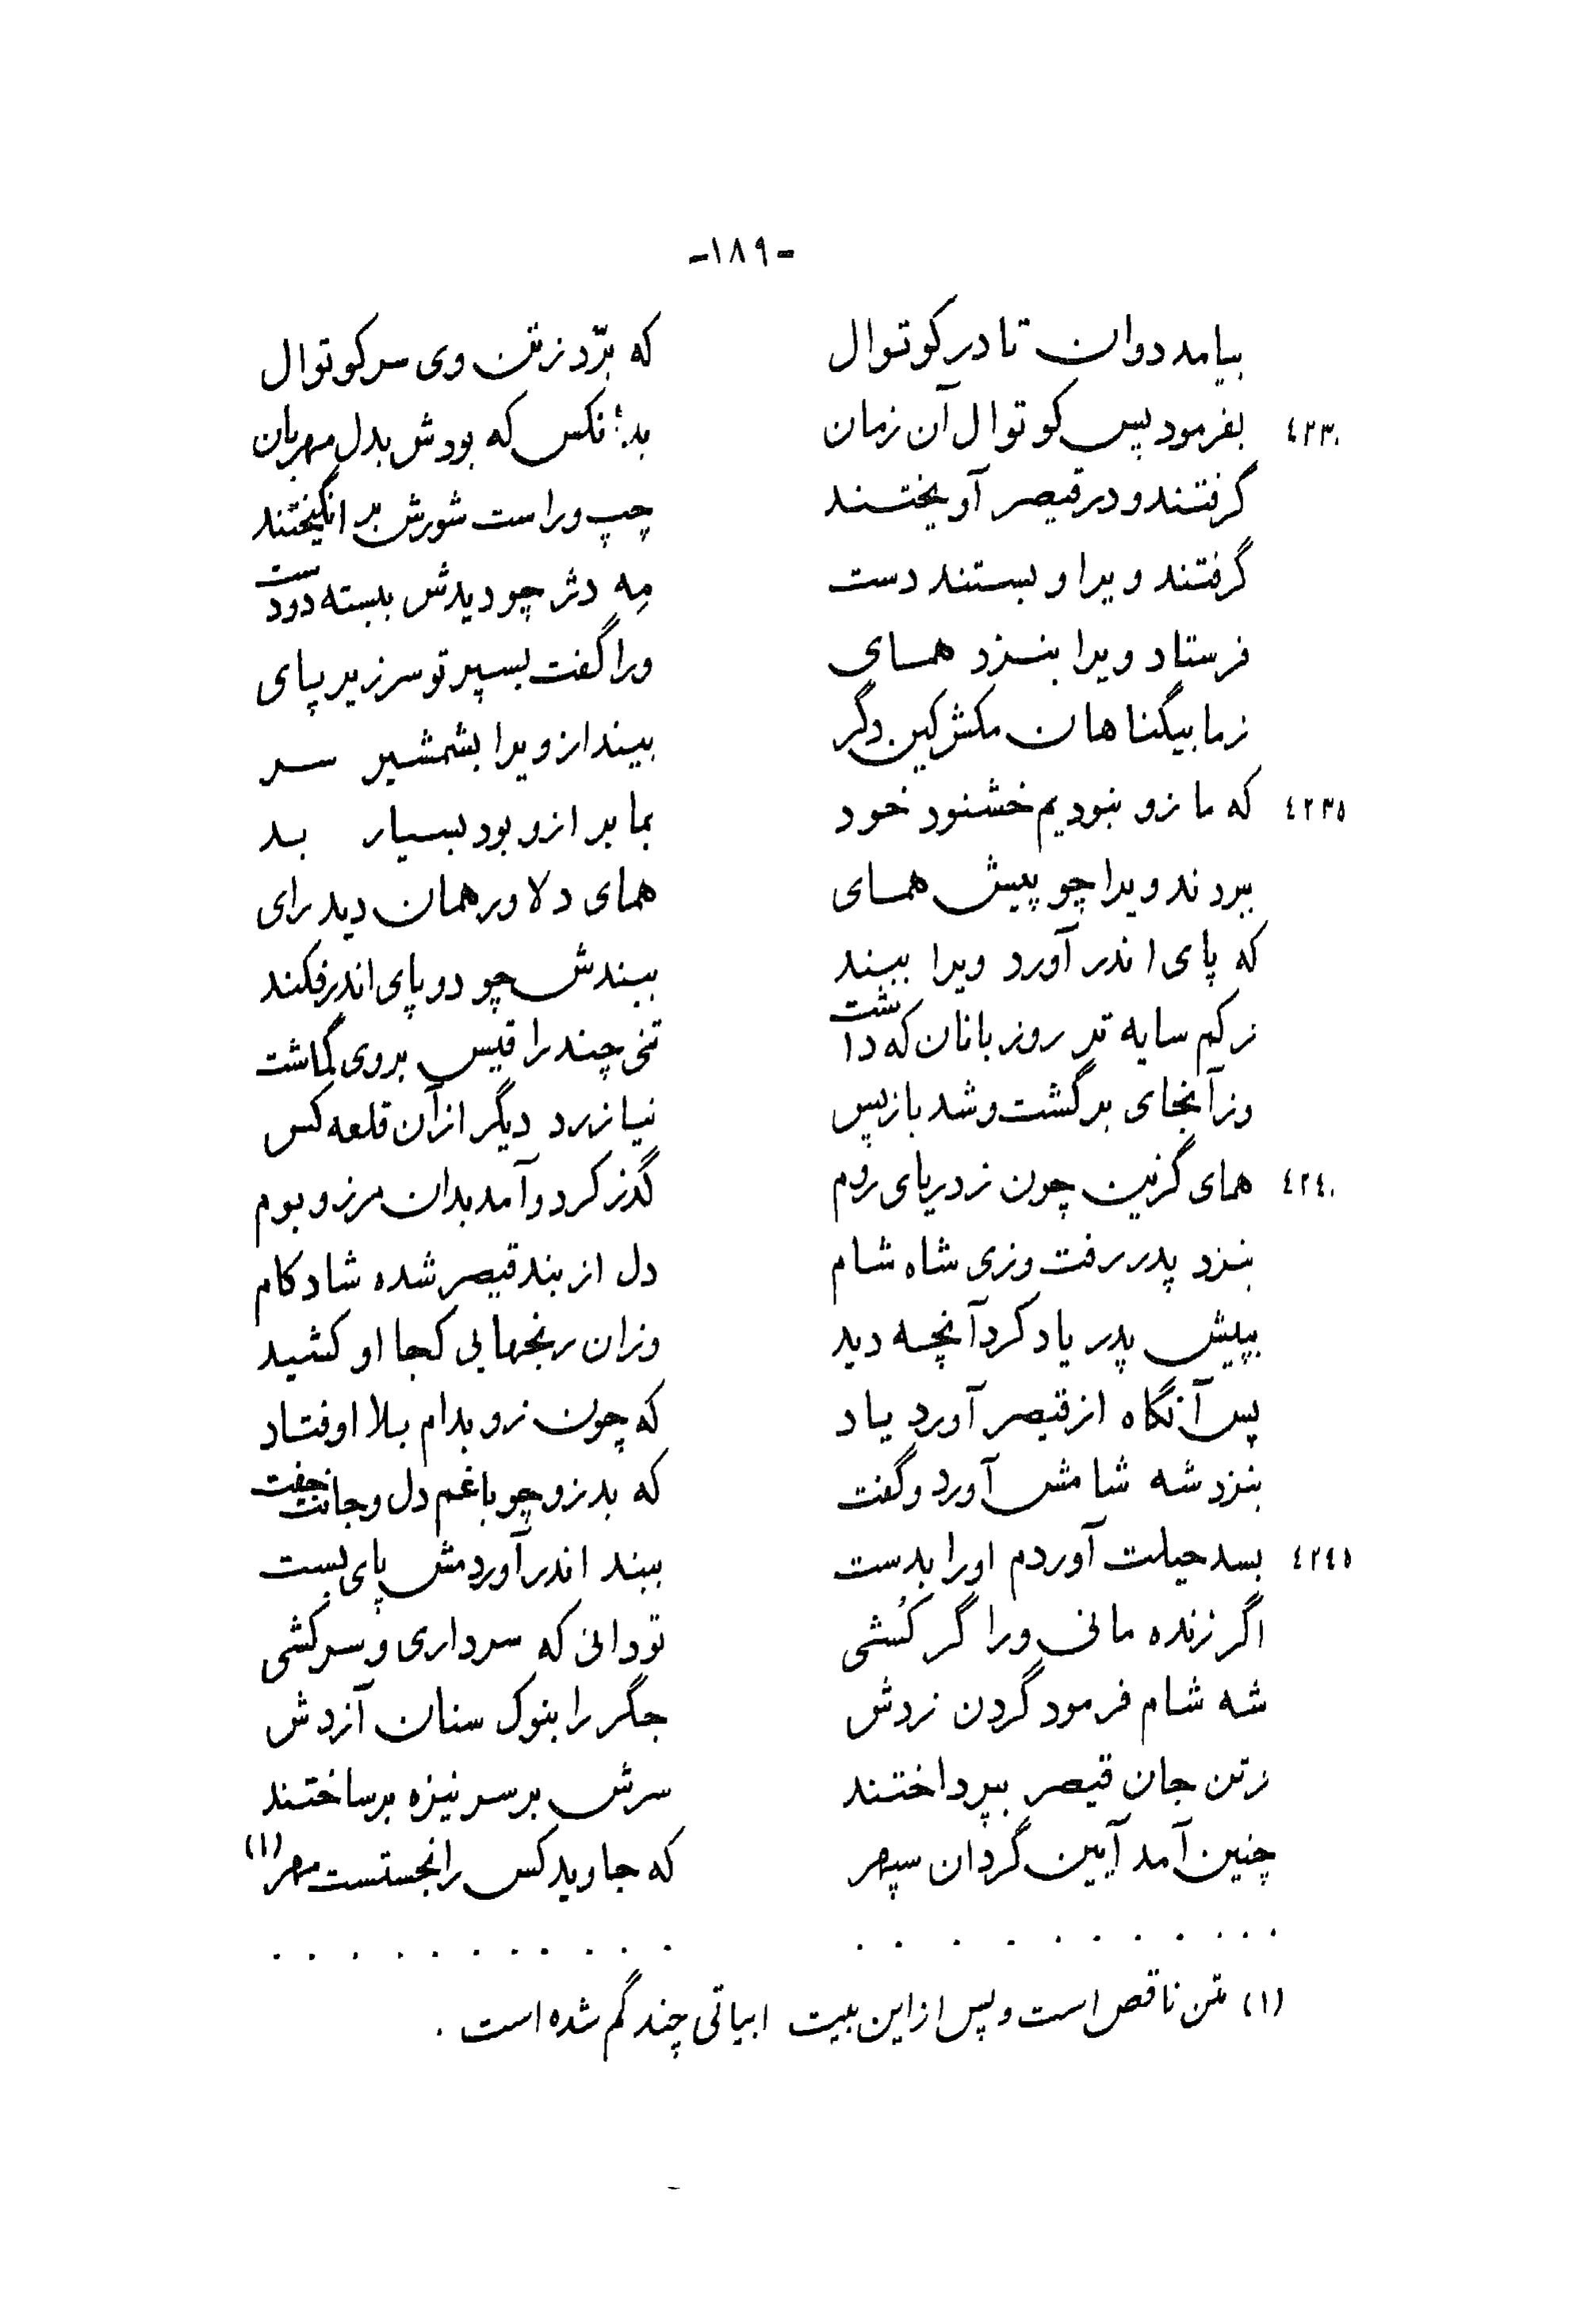 -۱۸۹-
بیامد دوان تا در کوتوال که برّد ز تن وی سر کوتوال
۴۲۳۰ بفرمود پس کوتوال آن زمان بدآنکس که بودش بدل مهربان
گرفتند و در قیصر آویختند چپ و راست شورش بر انگیختند
گرفتند ویرا و بستند دست مِه دژ چو دیدش ببسته دو دست
فرستاد ویرا بنزد همای ورا گفت بسپر تو سر زیر پای
ز ما بیگناهان مکش کین دگر بینداز ویرا بشمشیر سر
۴۲۳۵ که ما زو نبودیم خشنود خود بما بر ازو بود بسیار بد
ببردند ویرا چو پیش همای همای دلاور همان دید رای
که پای اندر آورد ویرا ببند ببندش چو دو پای اندر فکند
ز کم سایه تر روزبانان که داشت تنی چند را قیس بروی گماشت
وز آنجای برگشت و شد باز پس نیازرد دیگر از آن قلعه کس
۴۲۴۰ همای گزین چون ز دریای روم گذر کرد و آمد بدان مرز و بوم
بنزد پدر رفت وزی شاه شام دل از بند قیصر شده شادکام
بپیش پدر یاد کرد آنچه دید وزان رنجهایی کجا او کشید
پس آنگاه از قیصر آورد یاد که چون زو بدام بلا اوفتاد
بنزد شه شامش آورد و گفت که بد زو چو با غم دل و جانت جفت
۴۲۴۵ بسد حیلت آوردم او را بدست ببند اندر آوردمش پای بست
اگر زنده مانی ورا گر کُشی تو دانی که سرداری و سرکشی
شه شام فرمود گردن زدش جگر را بنوک سنان آزدش
ز تن جان قیصر بپرداختند سرش بر سر نیزه بر ساختند
چنین آمد آیین گردان سپهر که جاوید کس را نجستست مهر (۱)
. . . . . . . . . . . . . . . . . . . . .
(۱) متن ناقص است و پس از این بیت ابیاتی چند گم شده است .